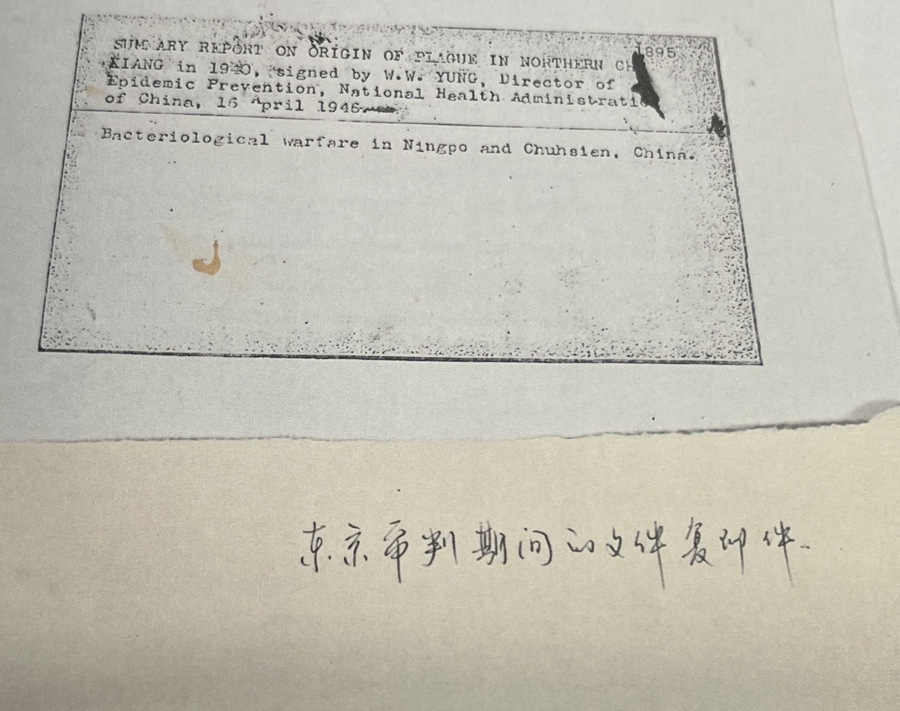 1895
SUMMARY REPORT ON ORIGIN OF PLAGUE IN NORTHERN
KIANG in 1940, signed by W.W. YUNG, Director of
Epidemic Prevention, National Health Administrati
of China, 16 April 1946
Bacteriological warfare in Ningpo and Chuhsien, China.
东京审判期间的文件复印件.